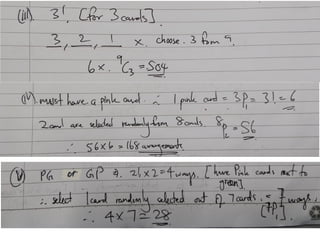 (iii) 3! [for 3 cards]
3, 2, 1 x choose 3 from 9.
6 x ⁹C₃ = 504
(iv) must have a pink card ∴ 1 pink card = 3P₁ = 3! = 6
2 card are selected randomly from 8 cards. 8P₂ = 56
∴ 56 x 6 = 168 arrangements
(v) PG or GP ∴ 2! x 2 = 4 ways. [have Pink cards next to green].
∴ select 1 card randomly selected out of 7 cards. = 7 ways.
[7P₁]
∴ 4 x 7 = 28